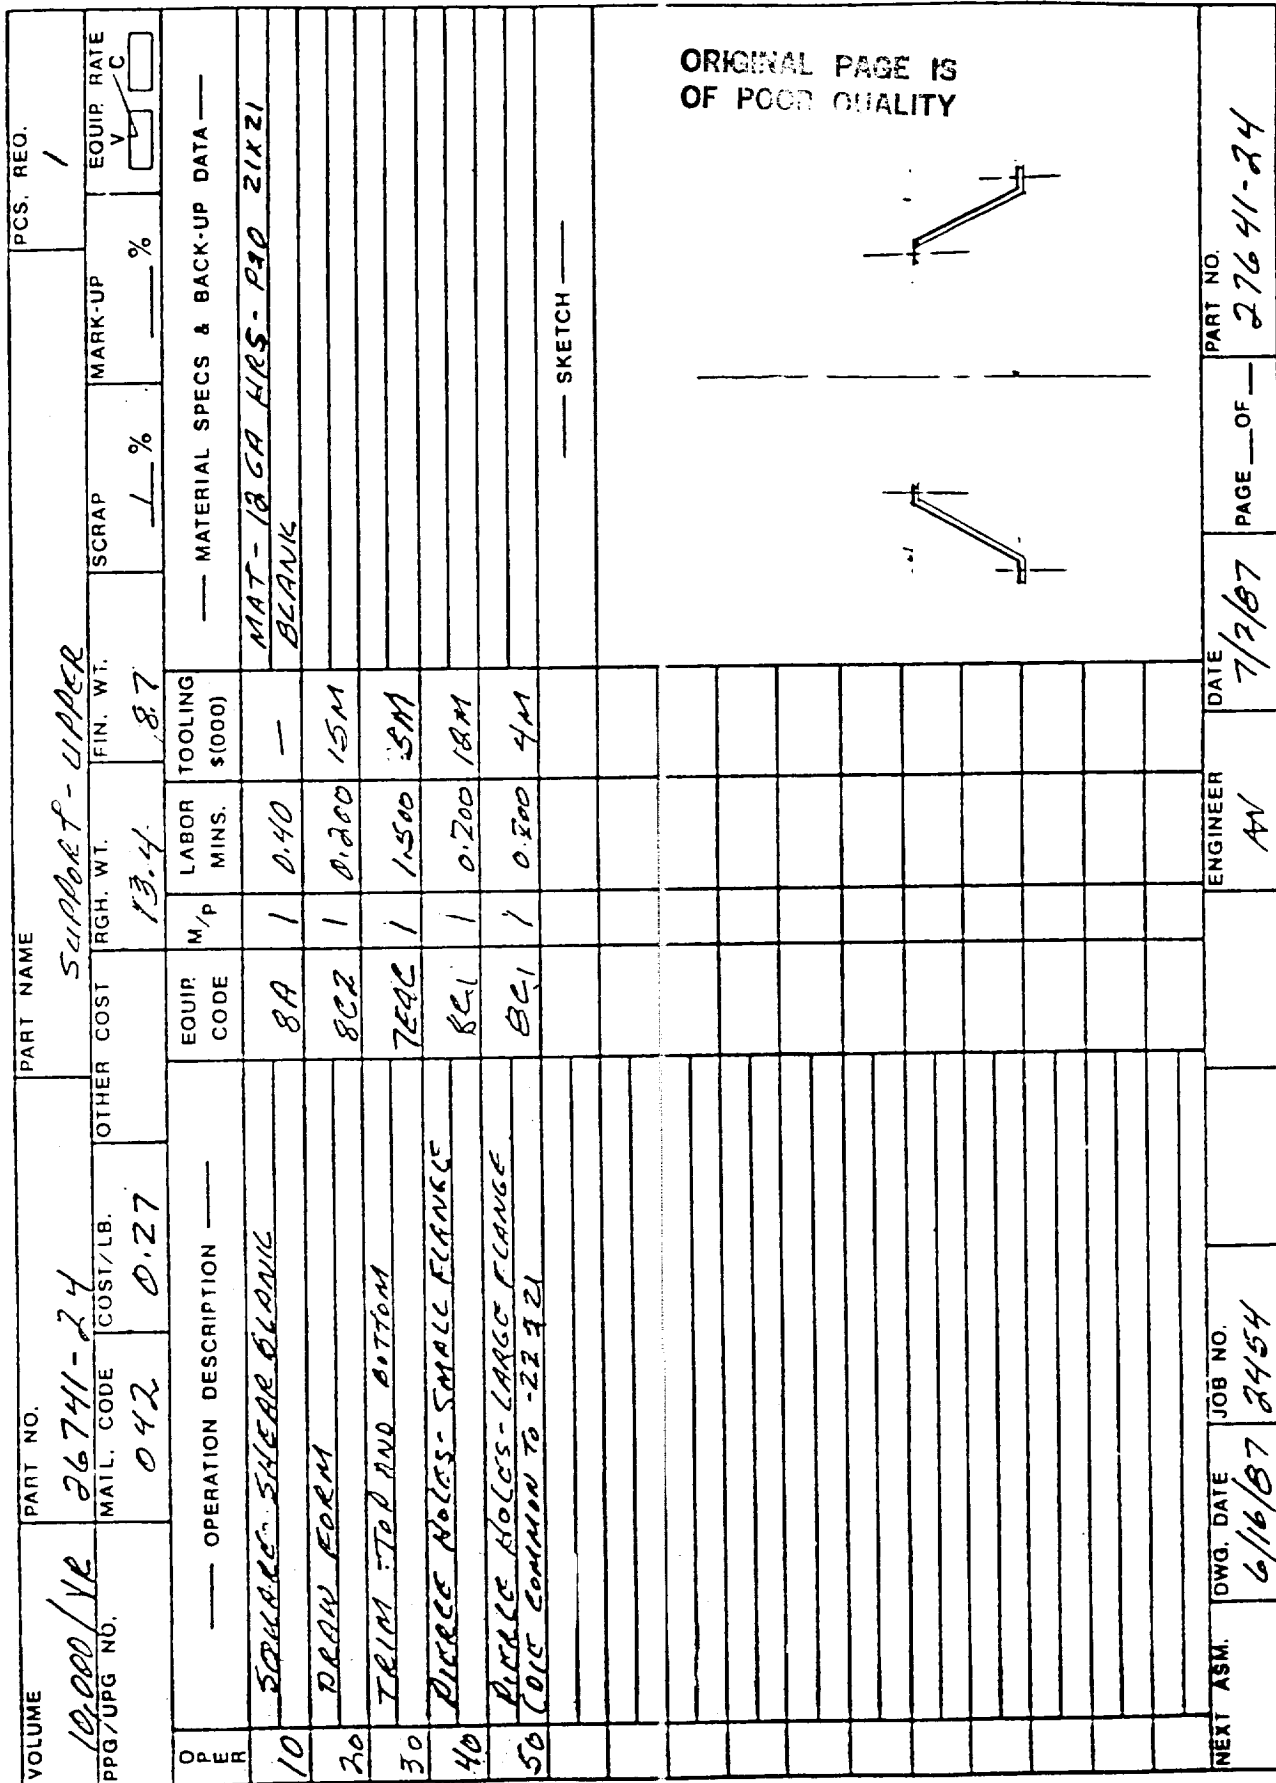 VOLUME
10,000/YR
PART NO.
26741-24
PART NAME
SUPPORT - UPPER
PCS. REQ.
1
PPG/UPG NO.
MATL. CODE
042
COST/LB.
0.27
OTHER COST
RGH. WT.
13.4
FIN. WT.
8.7
SCRAP
1 %
MARK-UP
%
EQUIP. RATE
V C
OPER
OPERATION DESCRIPTION
EQUIP. CODE
M/P
LABOR MINS.
TOOLING $(000)
MATERIAL SPECS & BACK-UP DATA
10 SQUARE SHEAR BLANK 8A 1 0.40 —
20 DRAW FORM 8C2 1 0.200 15M
30 TRIM - TOP AND BOTTOM 7EAC 1 1.500 5M
40 PIERCE HOLES - SMALL FLANGE 8C1 1 0.200 12M
50 PIERCE HOLES - LARGE FLANGE 8C1 1 4M
(DIE COMMON TO -22 & 21
MAT - 12 GA HRS - P&O 21X21
BLANK
SKETCH
ORIGINAL PAGE IS
OF POOR QUALITY
NEXT ASM.
DWG. DATE
6/16/87
JOB NO.
2454
ENGINEER
DATE
7/2/87
PAGE OF
PART NO.
27641-24